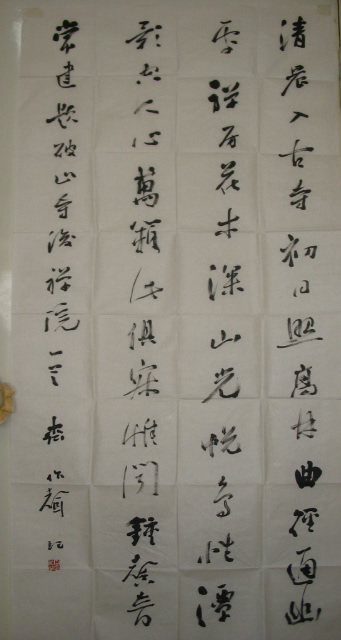 清晨入古寺初日照高林曲径通幽
處禅房花木深山光悦鸟性潭
影空人心萬籁此俱寂惟闻鐘磬音
常建题破山寺後禅院